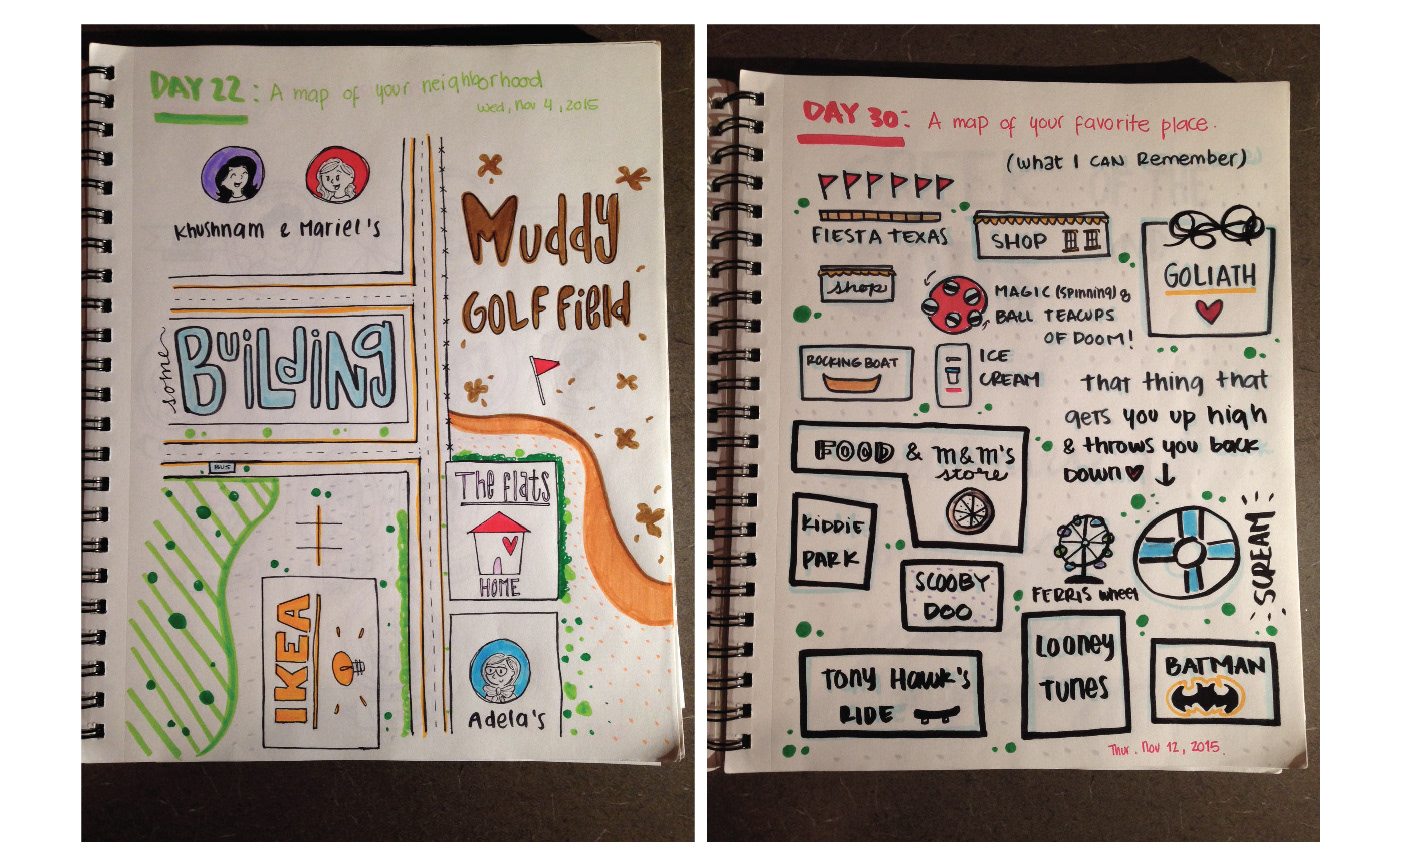 DAY 22: A map of your neighborhood
Wed, Nov 4, 2015
Khushnam & Mariel's
Muddy
GOLF Field
some
BUILDING
BUS
The flats
HOME
IKEA
Adela's
DAY 30: A map of your favorite place.
(What I CAN Remember)
FIESTA TEXAS
SHOP
GOLIATH
shop
MAGIC (spinning) 8
BALL TEACUPS
OF DOOM!
ROCKING BOAT
ICE
CREAM
That thing that
gets you up high
& throws you back
DOWN
FOOD & M&M's
store
KIDDIE
PARK
SCOOBY
DOO
FERRIS wheel
SCREAM
TONY HAWK'S
RIDE
LOONEY
TUNES
BATMAN
Thur. Nov 12, 2015.